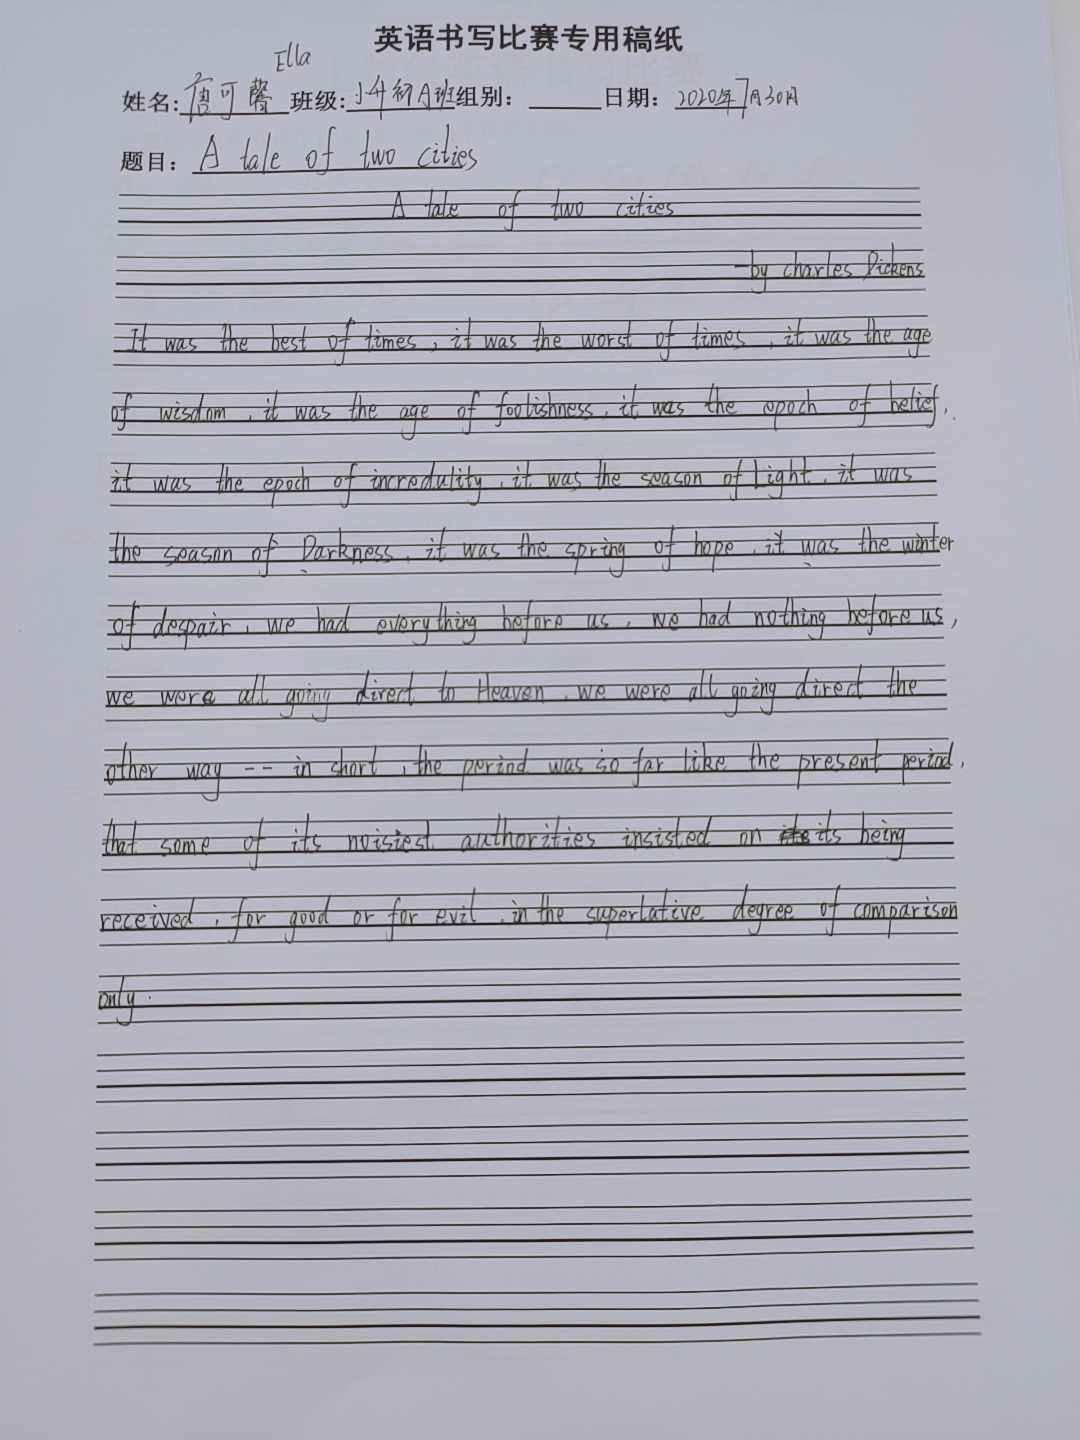 英语书写比赛专用稿纸
Ella
姓名: 唐可馨 班级: 小升初A班 组别: 日期: 2020年7月30日
题目: A tale of two cities
A tale of two cities
—by charles Dickens
It was the best of times, it was the worst of times, it was the age
of wisdom, it was the age of foolishness, it was the epoch of belief,
it was the epoch of incredulity, it was the season of Light, it was
the season of Darkness, it was the spring of hope, it was the winter
of despair, we had everything before us, we had nothing before us,
we were all going direct to Heaven, we were all going direct the
other way -- in short, the period was so far like the present period,
that some of its noisiest authorities insisted on its being
received, for good or for evil, in the superlative degree of comparison
only.